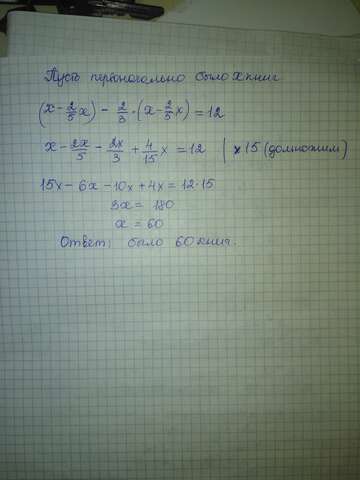 Пусть первоначально было x книг
(x - 2/5 x) - 2/3 · (x - 2/5 x) = 12
x - 2x/5 - 2x/3 + 4/15 x = 12 | × 15 (домножим)
15x - 6x - 10x + 4x = 12 · 15
3x = 180
x = 60
Ответ: было 60 книг.